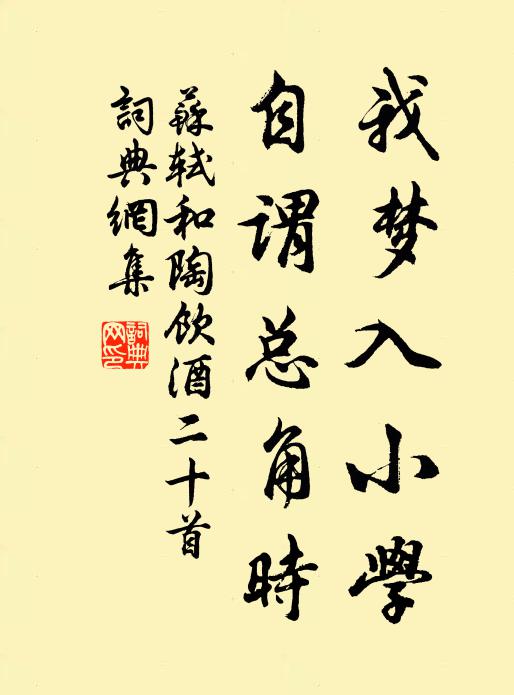 我梦入小學
自谓总角時
蘇轼和陶饮酒二十首
詞典網集
詞典
网印